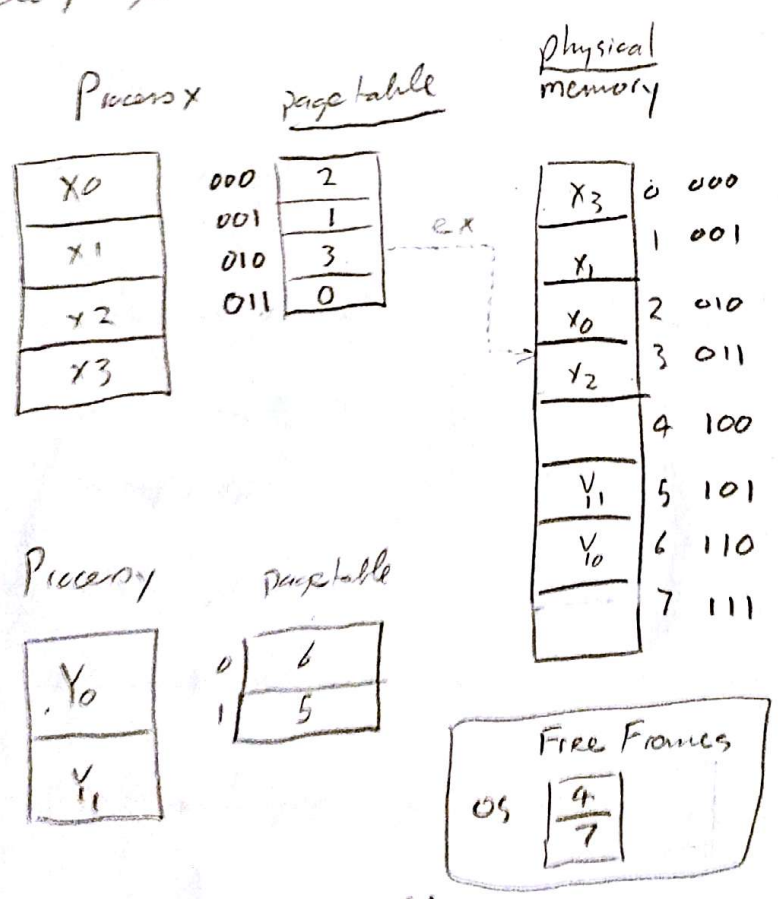 Process X
X0
X1
X2
X3
page table
000 2
001 1
010 3
011 0
ex
physical
memory
X3 0 000
X1 1 001
X0 2 010
X2 3 011
4 100
Y1 5 101
Y0 6 110
7 111
Process y
Y0
Y1
page table
0 6
1 5
Free Frames
OS
4
7